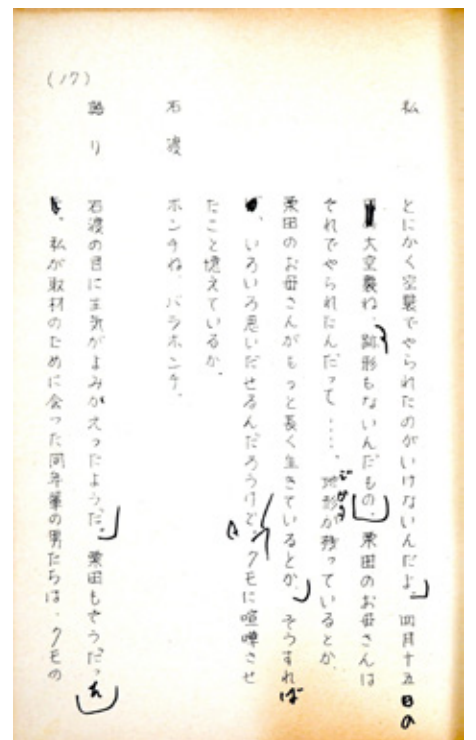 (17)
私 とにかく空襲でやられたのがいけないんだよ。四月十五日の
大空襲ね、跡形もないんだもの。栗田のお母さんは
それでやられたんだって……、地形が残っているとか、
栗田のお母さんがもっと長く生きているとか、そうすれば
、いろいろ思いだせるんだろうけど、クモに喧嘩させ
たこと憶えているか。
石渡 ホンチね、バラホンチ。
語り 石渡の目に生気がよみがえったようだ。栗田もそうだった
、私が取材のために会った同年輩の男たちは、クモの